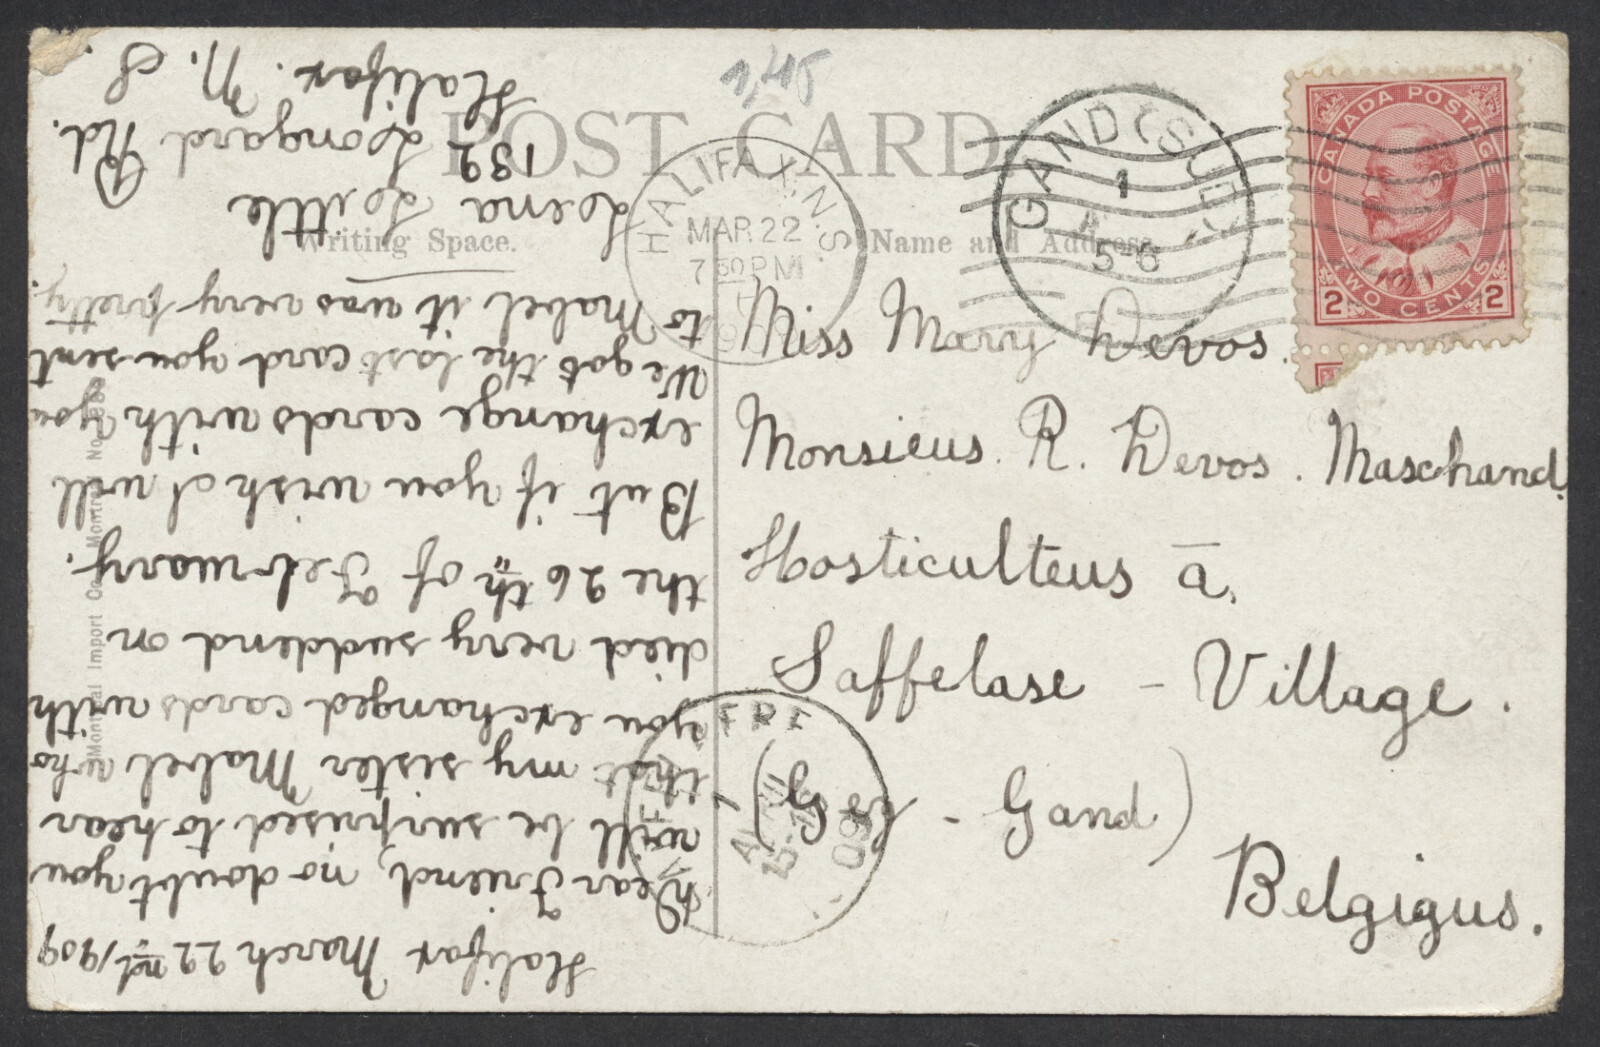 POST CARD
Writing Space.
Name and Address
1,45
HALIFAX, N.S.
MAR 22
7 30 PM
GAND (SUD)
1
5-6
CANADA POSTAGE
2 TWO CENTS 2
Halifax March 22nd, 1909
Dear Friend, no doubt you
will be surprised to hear
that my sister Mabel who
you exchanged cards with
died very suddend on
the 26th of February.
But if you wish I will
exchange cards with you
We got the last card you sent
to Mabel it was very pretty.
Lorna Little
139 Longard Rd.
Halifax. N. S.
Miss Mary Devos.
Monsieus. R. Devos. Maschand.
Hosticulteus a.
Saffelase - Village.
- Gand)
Belgigus.
Montreal Import Co. Montreal No.
09